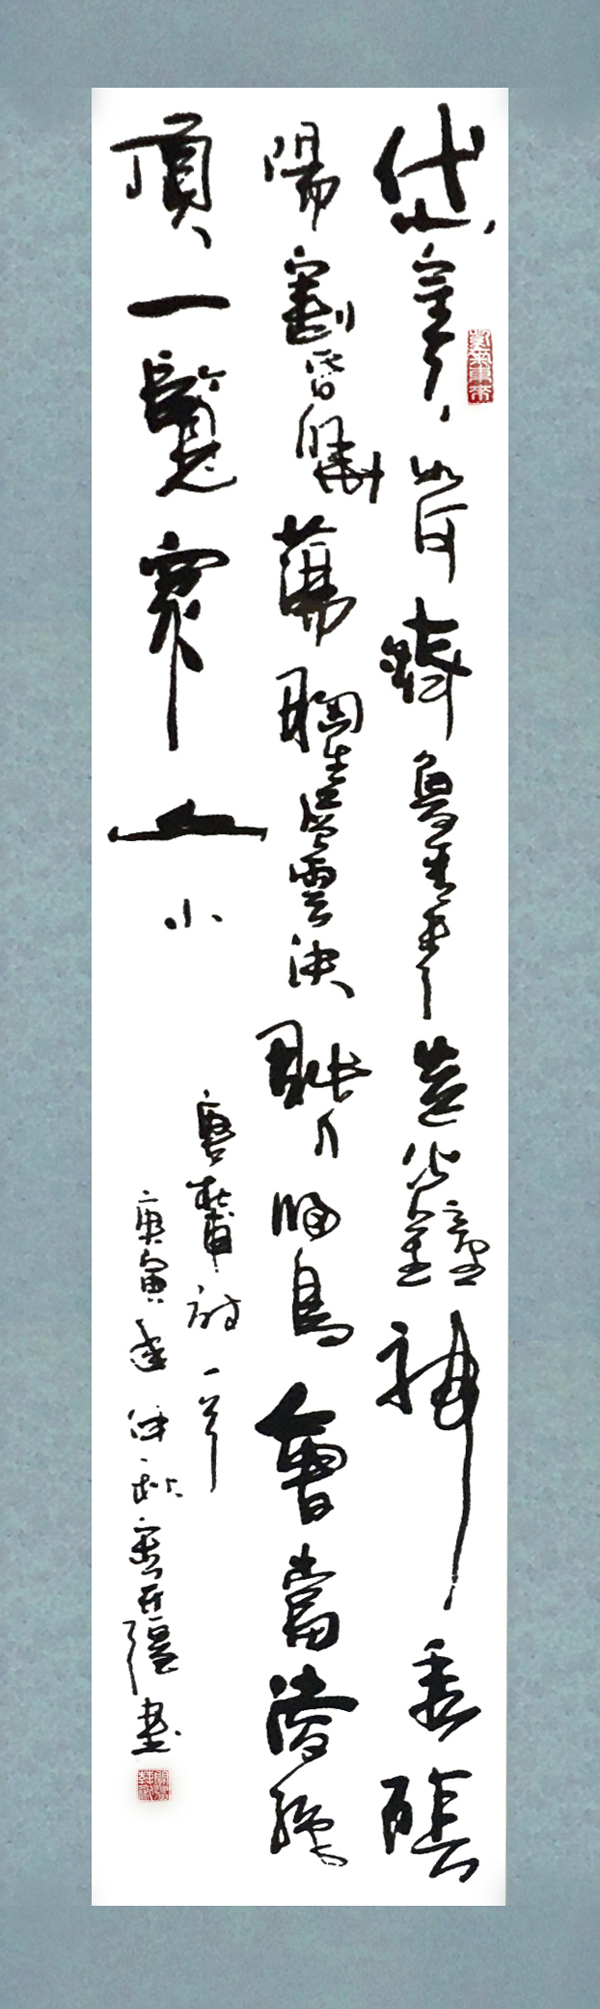 岱宗夫如何齊魯青未了造化鐘神秀陰
陽割昏曉蕩胸生層雲決眥入歸鳥會當凌絕
頂一覽眾山小
唐杜甫詩一首
庚寅年仲秋 書
紫氣東來